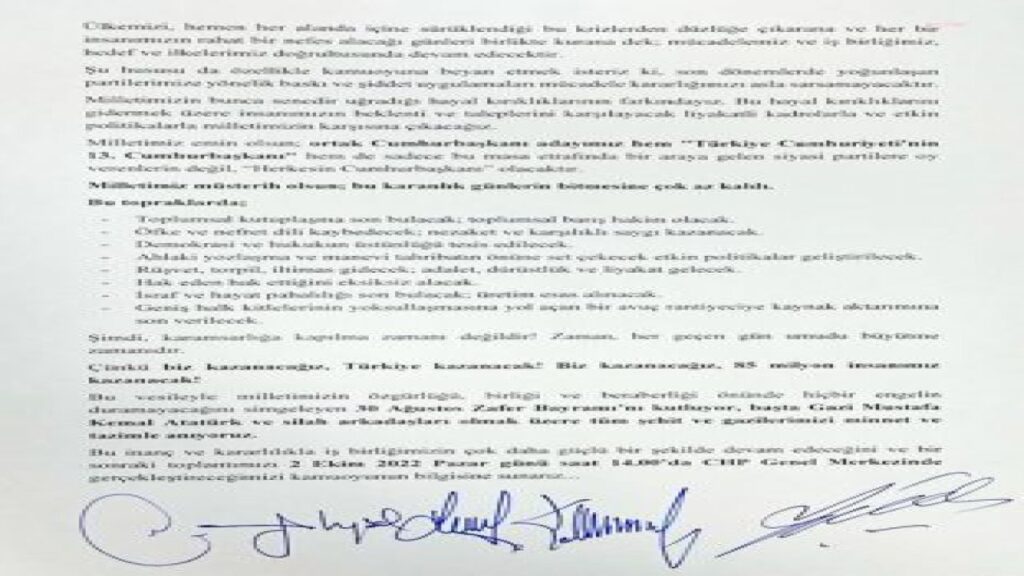 Ülkemizi, hemen her alanda içine sürüklendiği bu krizlerden düzlüğe çıkarana ve her bir
insanımızın rahat bir nefes alacağı günleri birlikte kurana dek; mücadelemiz ve iş birliğimiz,
hedef ve ilkelerimiz doğrultusunda devam edecektir.
Şu hususu da özellikle kamuoyuna beyan etmek isteriz ki, son dönemlerde yoğunlaşan
partilerimize yönelik baskı ve şiddet uygulamaları mücadele kararlığımızı asla sarsamayacaktır.
Milletimizin bunca senedir uğradığı hayal kırıklıklarının farkındayız. Bu hayal kırıklıklarını
gidermek üzere insanımızın beklenti ve taleplerini karşılayacak liyakatli kadrolarla ve etkin
politikalarla milletimizin karşısına çıkacağız.
Milletimiz emin olsun; ortak Cumhurbaşkanı adayımız hem "Türkiye Cumhuriyeti'nin
13. Cumhurbaşkanı" hem de sadece bu masa etrafında bir araya gelen siyasi partilere oy
verenlerin değil, "Herkesin Cumhurbaşkanı" olacaktır.
Milletimiz müsterih olsun; bu karanlık günlerin bitmesine çok az kaldı.
Bu topraklarda;
- Toplumsal kutuplaşma son bulacak; toplumsal barış hakim olacak.
- Öfke ve nefret dili kaybedecek; nezaket ve karşılıklı saygı kazanacak.
- Demokrasi ve hukukun üstünlüğü tesis edilecek.
- Ahlaki yozlaşma ve manevi tahribatın önüne set çekecek etkin politikalar geliştirilecek.
- Rüşvet, torpil, iltimas gidecek; adalet, dürüstlük ve liyakat gelecek.
- Hak eden hak ettiğini eksiksiz alacak.
- İsraf ve hayat pahalılığı son bulacak; üretim esas alınacak.
- Geniş halk kitlelerinin yoksullaşmasına yol açan bir avuç rantiyeciye kaynak aktarımına
son verilecek.
Şimdi, karamsarlığa kapılma zamanı değildir! Zaman, her geçen gün umudu büyütme
zamanıdır.
Çünkü biz kazanacağız, Türkiye kazanacak! Biz kazanacağız, 85 milyon insanımız
kazanacak!
Bu vesileyle milletimizin özgürlüğü, birliği ve beraberliği önünde hiçbir engelin
duramayacağını simgeleyen 30 Ağustos Zafer Bayramı'nı kutluyor, başta Gazi Mustafa
Kemal Atatürk ve silah arkadaşları olmak üzere tüm şehit ve gazilerimizi minnet ve
tazimle anıyoruz.
Bu inanç ve kararlılıkla iş birliğimizin çok daha güçlü bir şekilde devam edeceğini ve bir
sonraki toplantımızı 2 Ekim 2022 Pazar günü saat 14.00'da CHP Genel Merkezinde
gerçekleştireceğimizi kamuoyunun bilgisine sunarız...